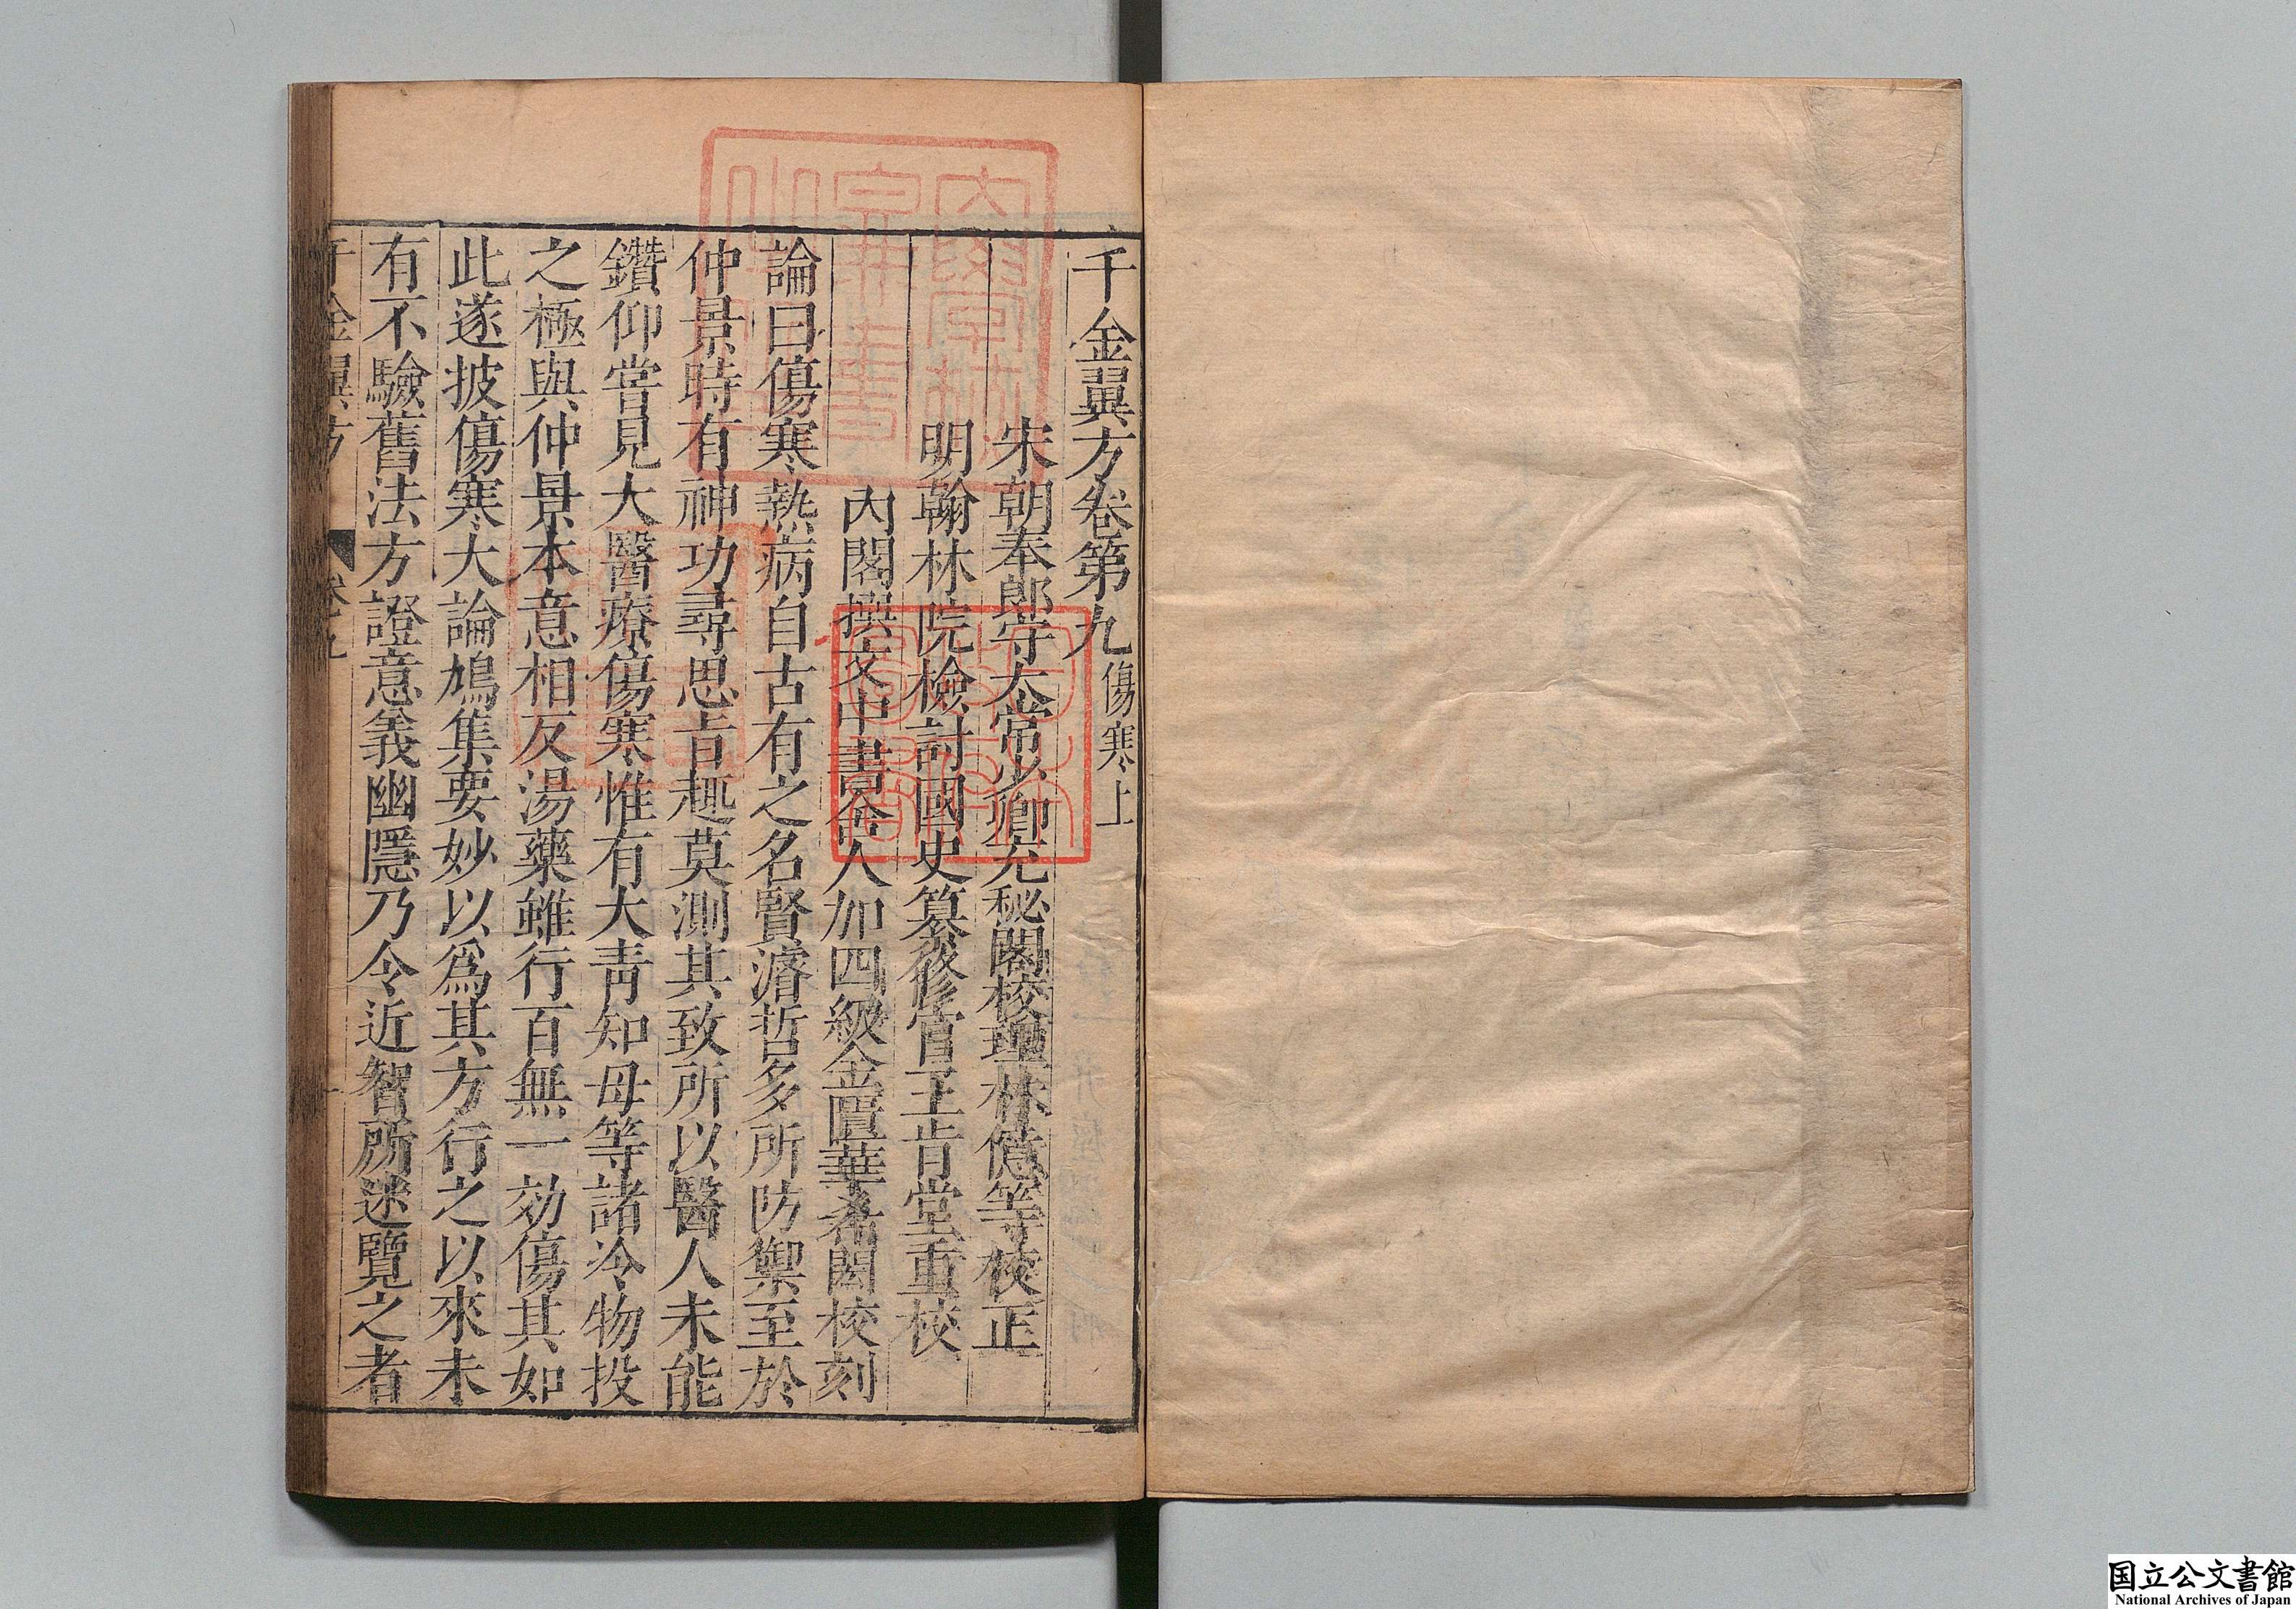 千金翼方卷第九 傷寒上
宋朝奉郎守太常少卿充秘閣校理林億等校正
明翰林院檢討國史纂修官王肯堂重校
內閣撰文中書舍人加四級金匱華希閎校刻
論曰傷寒熱病自古有之名賢濬哲多所防禦至於
仲景時有神功尋思旨趣莫測其致所以醫人未能
鑽仰嘗見大醫療傷寒惟有大青知母等諸冷物投
之極與仲景本意相反湯藥雖行百無一効傷其如
此遂披傷寒大論鳩集要妙以為其方行之以來未
有不驗舊法方證意義幽隱乃令近智所迷覽之者
千金翼方 卷之九 一
国立公文書館
National Archives of Japan